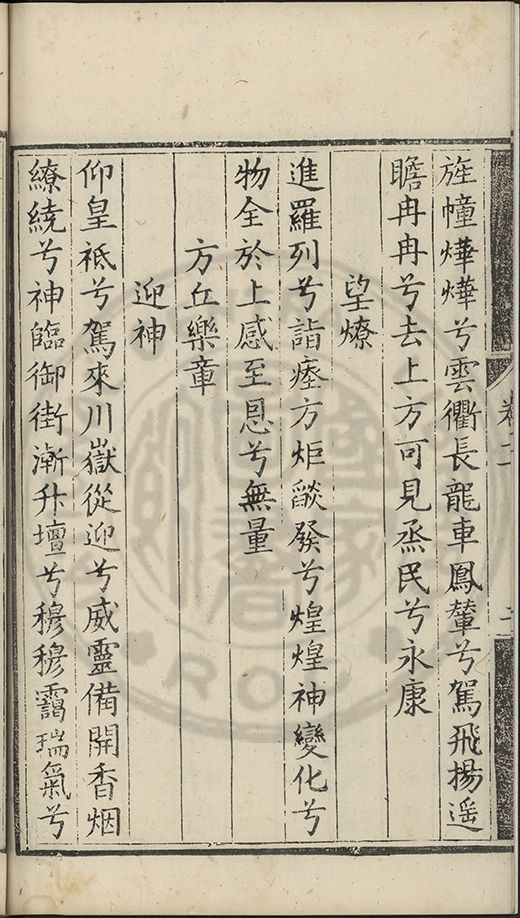 旌幢燁燁兮雲衢長龍車鳳輦兮駕飛揚遥
瞻冉冉兮去上方可見烝民兮永康
望燎
進羅列兮詣瘞方炬燄發兮煌煌神變化兮
物全於上感至恩兮無量
方丘樂章
迎神
仰皇祇兮駕來川嶽從迎兮威靈備開香烟
繚繞兮神臨御街漸升壇兮穆穆靄瑞氣兮